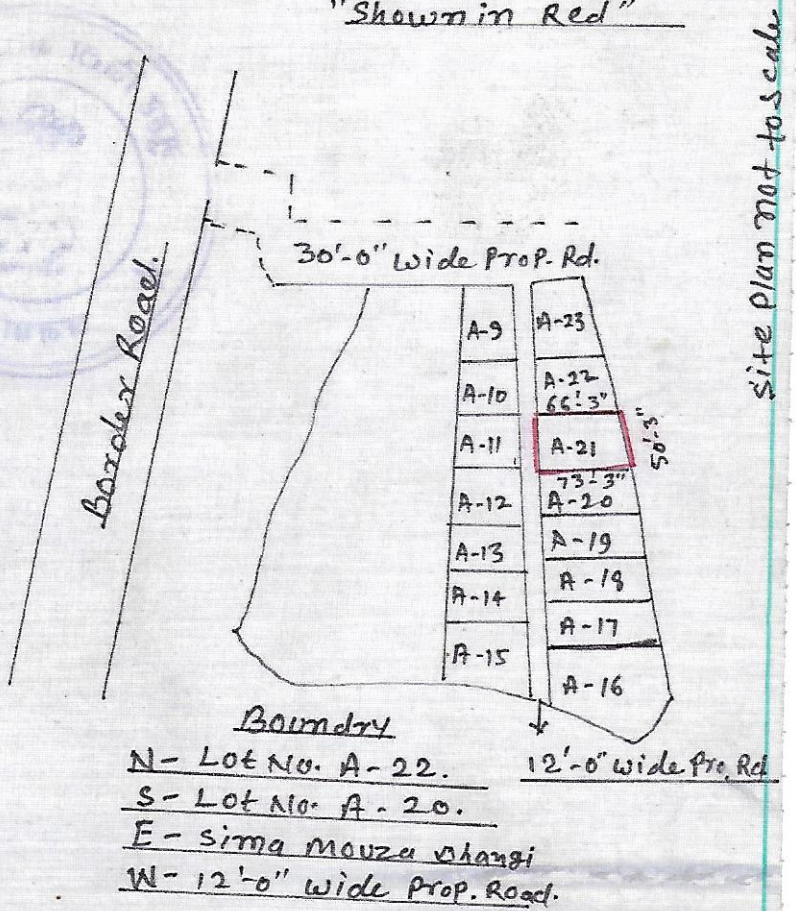 "Shown in Red"
site plan not to scale
Border Road.
30'-0" wide Prop. Rd.
A-9
A-23
A-10
A-22
66'-3"
A-11
A-21
50'-3"
73'-3"
A-12
A-20
A-13
A-19
A-14
A-18
A-15
A-17
A-16
12'-0" wide Pro. Rd
Boundry
N- Lot No. A-22.
S- Lot No. A-20.
E- Sima Mouza
W- 12'-0" wide Prop. Road.